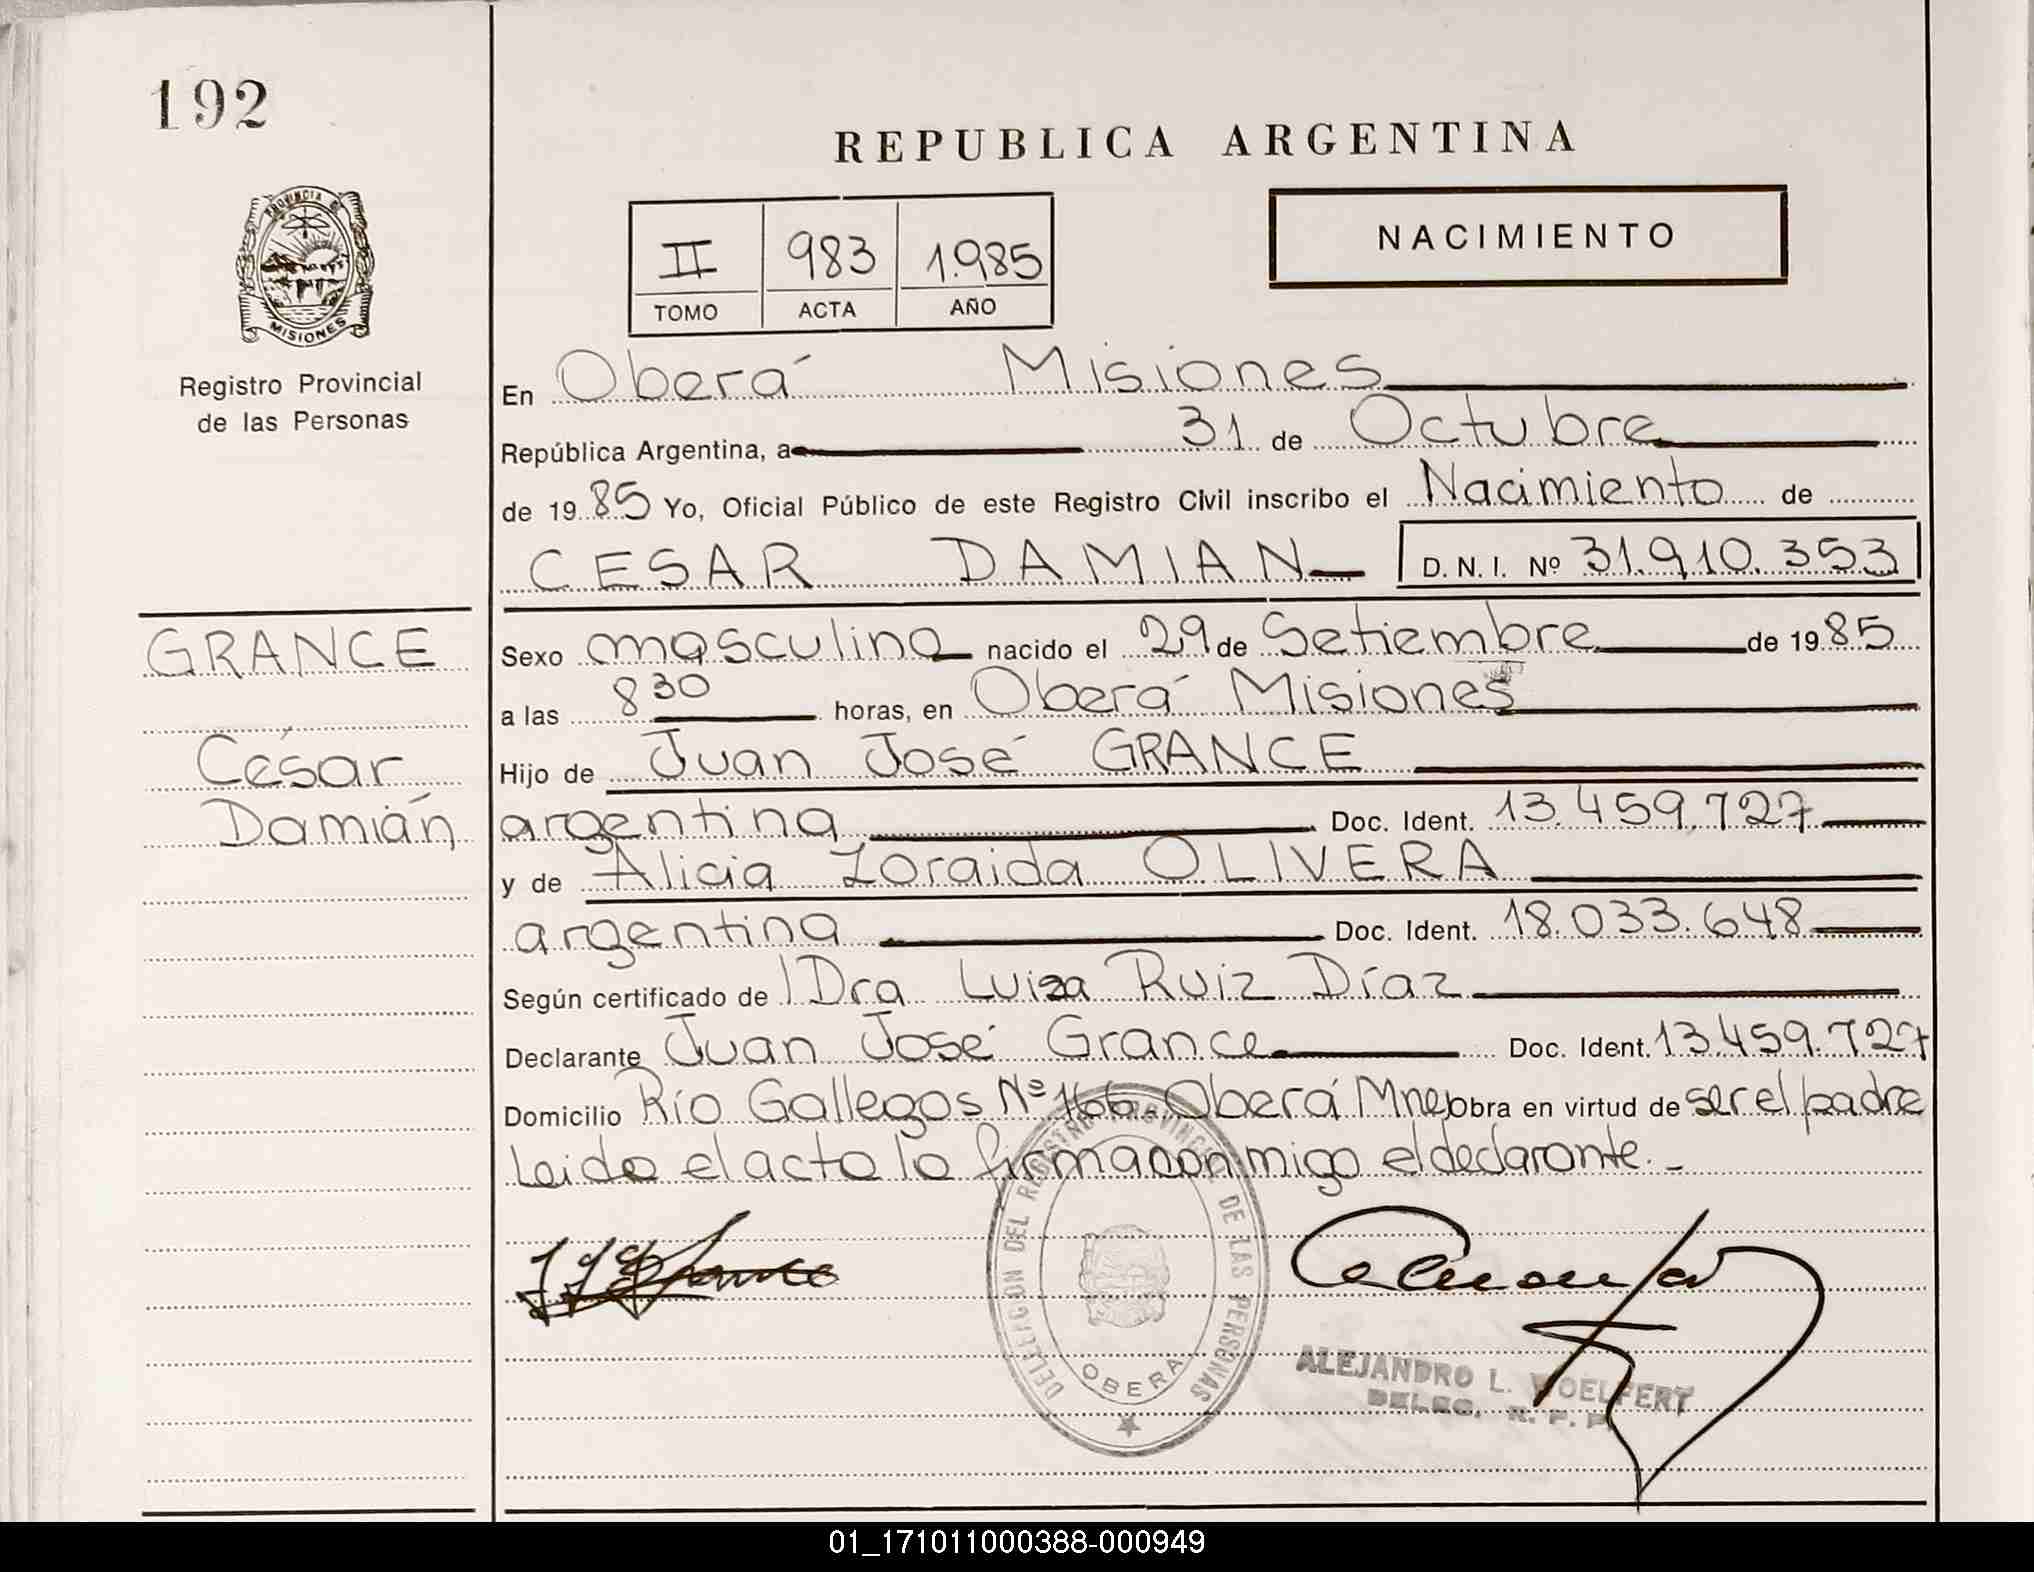 192
REPUBLICA ARGENTINA
PROVINCIA DE
MISIONES
II 983 1.985
TOMO ACTA AÑO
NACIMIENTO
Registro Provincial
de las Personas
En Oberá Misiones
República Argentina, a 31 de Octubre
de 1985 Yo, Oficial Público de este Registro Civil inscribo el Nacimiento de
CESAR DAMIAN D. N. I. Nº 31.910.353
GRANCE
César
Damián
Sexo masculino nacido el 29 de Setiembre de 1985
a las 8 30 horas, en Oberá Misiones
Hijo de Juan José GRANCE
argentina Doc. Ident. 13.459.727
y de Alicia Zoraida OLIVERA
argentina Doc. Ident. 18.033.648
Según certificado de Dra Luiza Ruiz Díaz
Declarante Juan José Grance Doc. Ident. 13.459.727
Domicilio Río Gallegos Nº 166 Oberá Mnes obra en virtud de ser el padre
Leido el acta la firma conmigo el declarante.-
DELEGACION DEL REGISTRO PROVINCIAL DE LAS PERSONAS
OBERA
ALEJANDRO L. WOELFERT
DELEG. R. P. P.
01_171011000388-000949